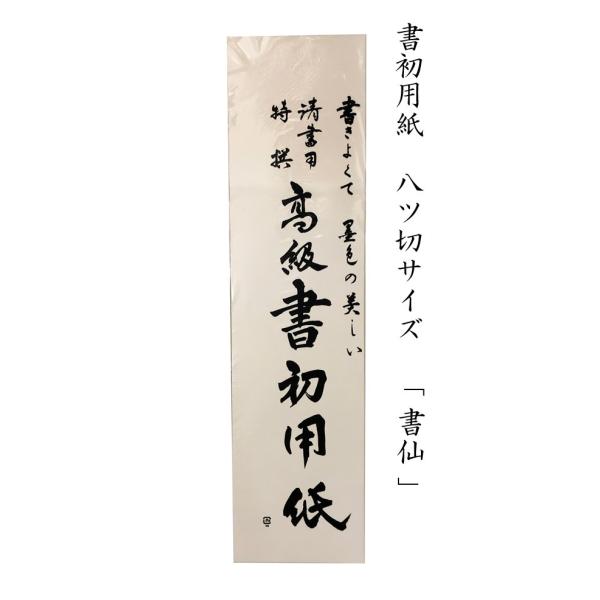 書初用紙　八ツ切サイズ　「書仙」
書きよくて　墨色の美しい
清書用
特撰
高級書初用紙